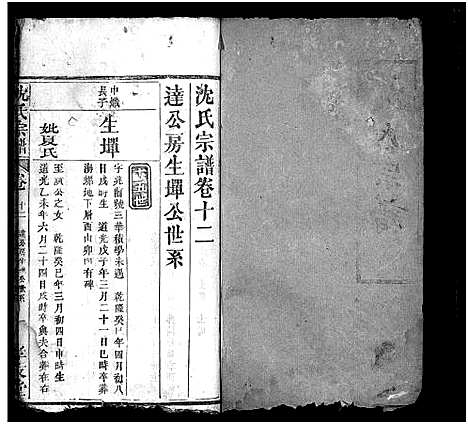 沈氏宗譜卷十二
達公房生墠公世系
十五世
申嬂長子
生墠
字兆南號三華積學未遇 乾隆癸巳年四月初八
日戌時生 道光戊子年三月二十一日巳時卒葬
海螺地下厝酉山卯向有碑
妣夏氏
至廣公之女 乾隆癸巳年三月初四日申時生
道光乙未年六月二十四日戌時卒與夫合葬在右
沈氏宗譜 卷十二